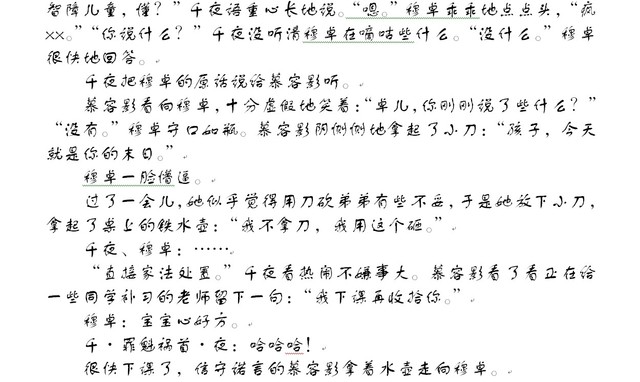 智障儿童，懂？”千夜语重心长地说。“嗯。”穆卓乖乖地点点头，“疯
xx。”“你说什么？”千夜没听清穆卓在嘀咕些什么。“没什么。”穆卓
很快地回答。
千夜把穆卓的原话说给慕容影听。
慕容影看向穆卓，十分虚假地笑着：“卓儿，你刚刚说了些什么？”
“没有。”穆卓守口如瓶。慕容影阴恻恻地拿起了小刀：“孩子，今天
就是你的末日。”
穆卓一脸懵逼。
过了一会儿，她似乎觉得用刀砍弟弟有些不妥，于是她放下小刀，
拿起了桌上的铁水壶：“我不拿刀，我用这个砸。”
千夜、穆卓：……
“直接家法处置。”千夜看热闹不嫌事大。慕容影看了看正在给
一些同学补习的老师留下一句：“我下课再收拾你。”
穆卓：宝宝心好方。
千·罪魁祸首·夜：哈哈哈！
很快下课了，信守诺言的慕容影拿着水壶走向穆卓。